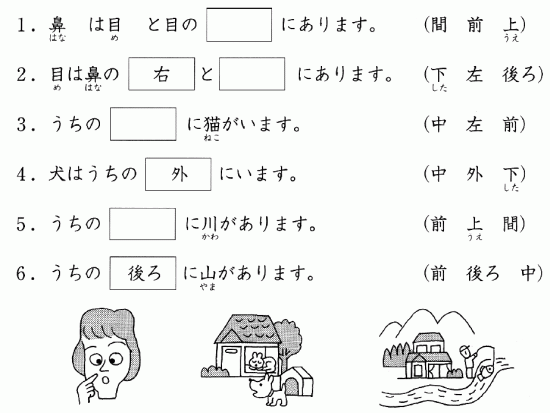 1．鼻 は目 と目の にあります。 (間 前 上)
はな め うえ
2．目は鼻の 右 と にあります。 (下 左 後ろ)
め はな した
3．うちの に猫がいます。 (中 左 前)
ねこ
4．犬はうちの 外 にいます。 (中 外 下)
した
5．うちの に川があります。 (前 上 間)
かわ うえ
6．うちの 後ろ に山があります。 (前 後ろ 中)
やま